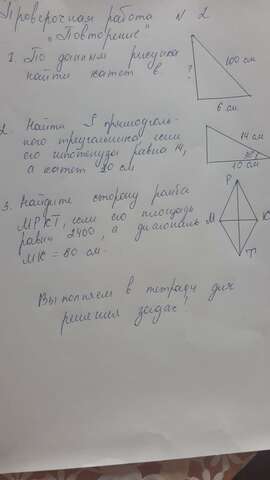 Проверочная работа N 2
"Повторение"
1. По данным рисунка
найти катет в.
?
100 см
6 см
2. Найти S прямоуголь-
ного треугольника если
его гипотенуза равна 14,
а катет 10 см
14 см
10 см
3. Найдите сторону ромба
МРКТ, если его площадь
равна 2400, а диагональ
МК = 80 см.
Р
М
К
Т
Выполняем в тетради для
решения задач!